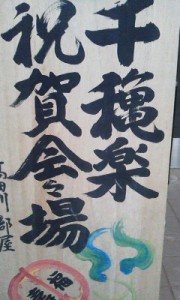 千穐楽
祝賀会場
高田川部屋